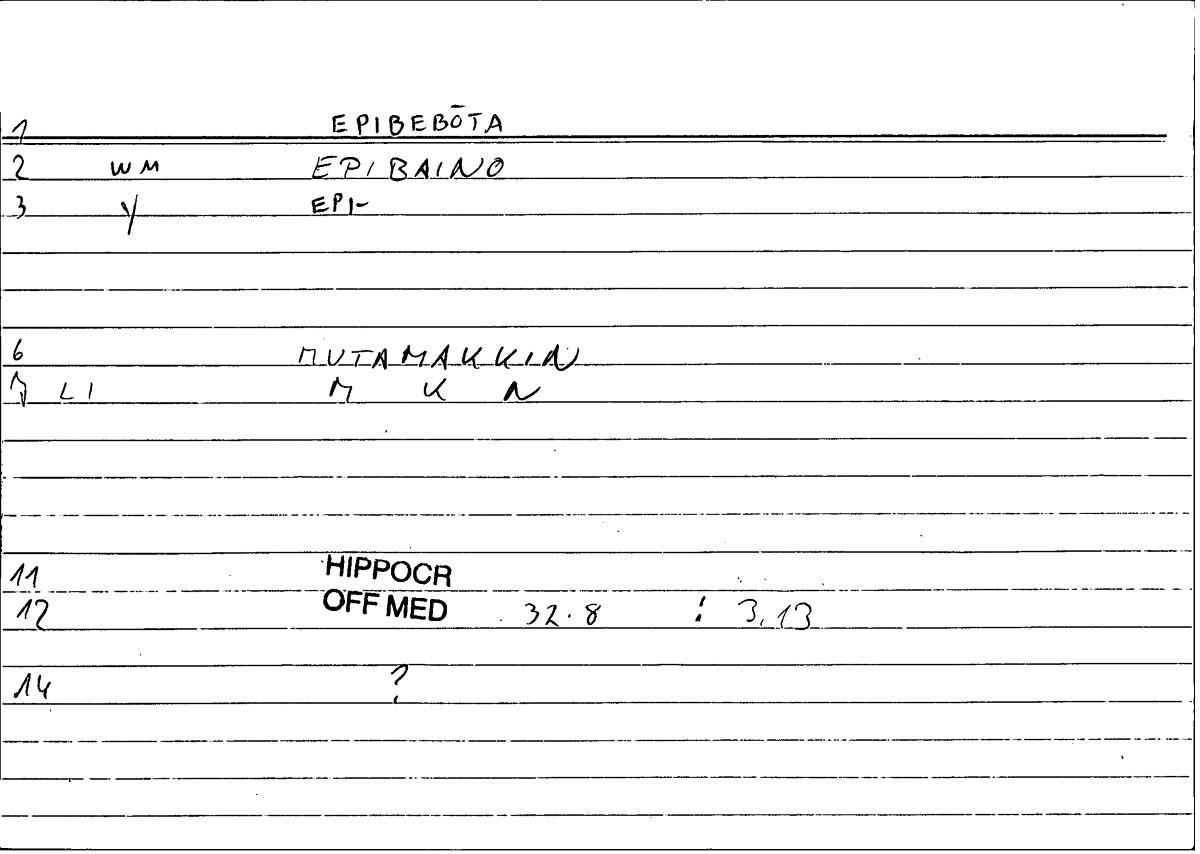 1 EPIBEBŌTA
2 WM EPIBAINO
3 Y EPI-
6 MUTAMAKKIN
7 LI M K N
11 HIPPOCR
12 OFF MED 32.8 : 3,13
14 ?